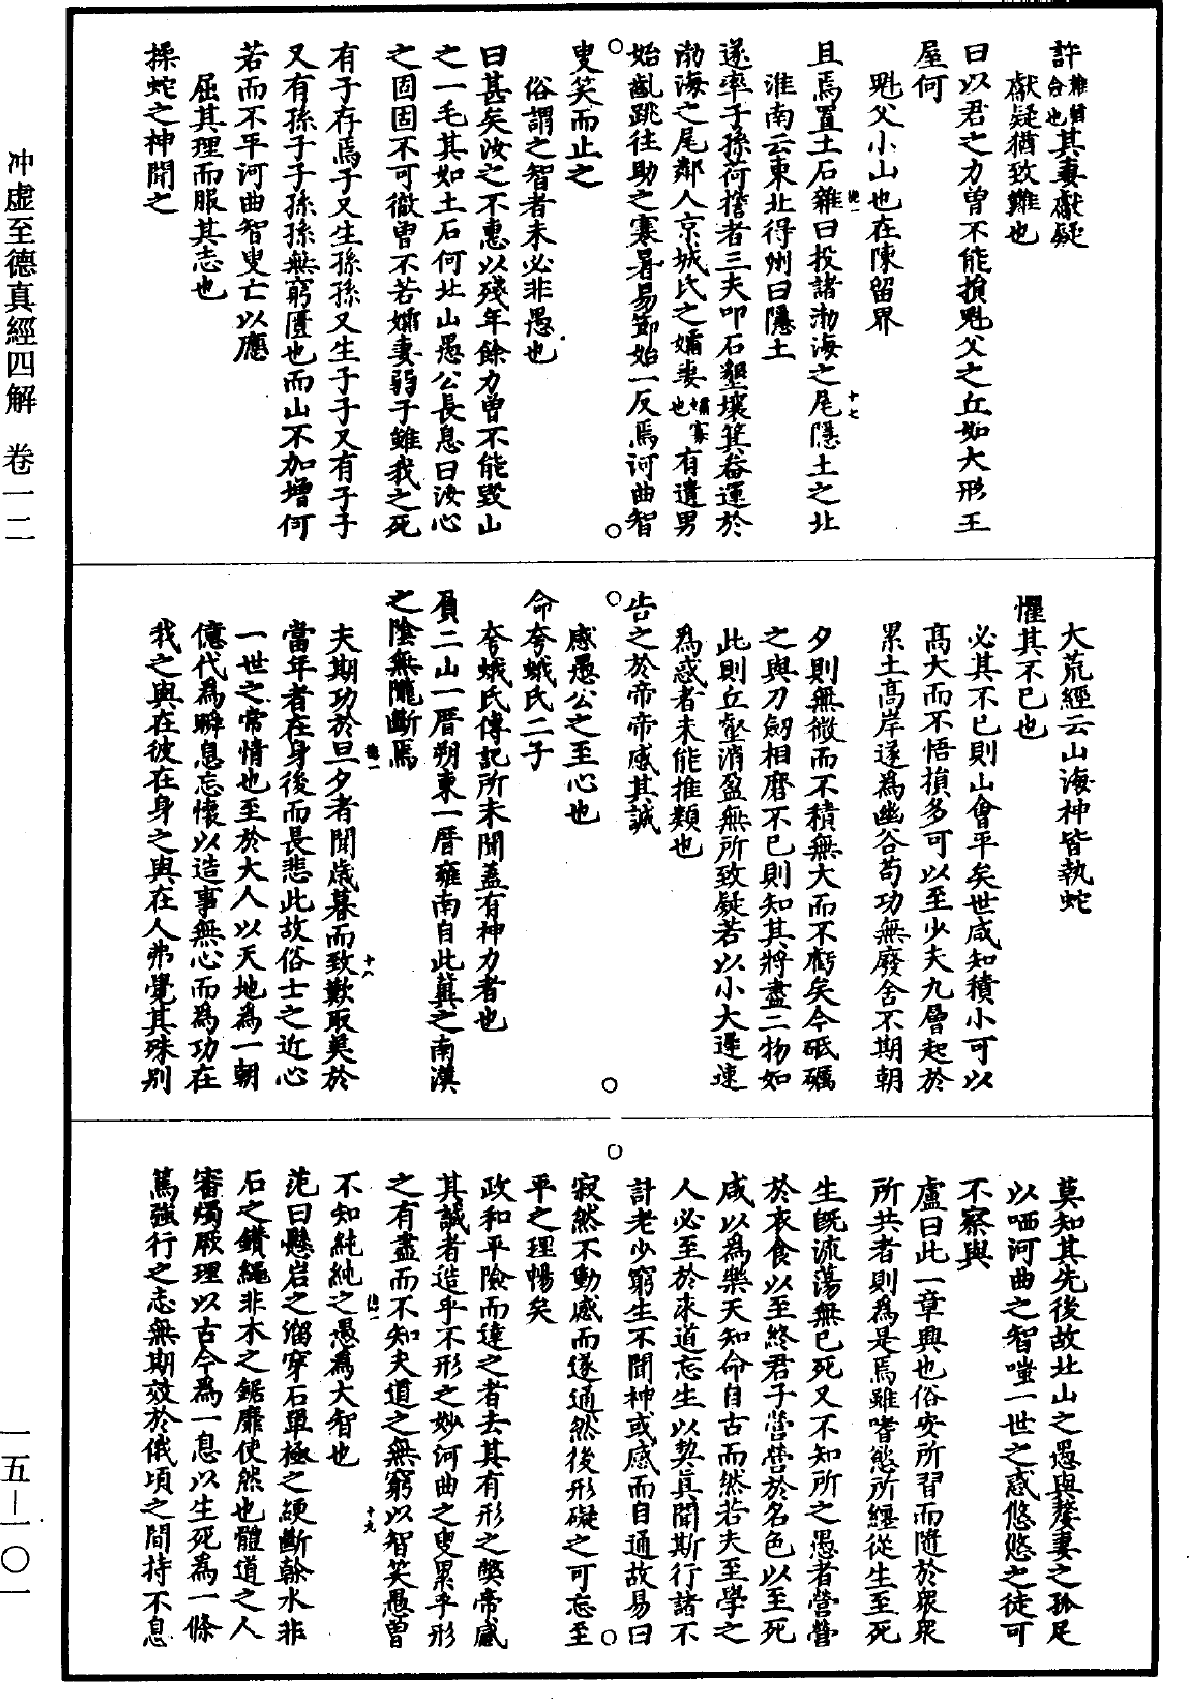 許雜猶
合也其妻獻疑
獻疑猶致難也
曰以君之力曾不能損魁父之丘如大形王
屋何
魁父小山也在陳留界
且焉置土石雜曰投諸渤海之尾隱土之北
淮南云東北得州曰隱土
遂率子孫荷擔者三夫叩石墾壤箕畚運於
渤海之尾鄰人京城氏之孀妻孀寡也有遺男
始齔跳往助之寒暑易節始一反焉河曲智
叟笑而止之
俗謂之智者未必非愚也
曰甚矣汝之不惠以殘年餘力曾不能毀山
之一毛其如土石何北山愚公長息曰汝心
之固固不可徹曾不若孀妻弱子雖我之死
有子存焉子又生孫孫又生子子又有子子
又有孫子子孫孫無窮匱也而山不加增何
若而不平河曲智叟亡以應
屈其理而服其志也
操蛇之神聞之
大荒經云山海神皆執蛇
懼其不已也
必其不已則山會平矣世咸知積小可以
高大而不悟損多可以至少夫九層起於
累土高岸遂為幽谷苟功無廢舍不期朝
夕則無微而不積無大而不虧矣今砥礪
之與刀劒相磨不已則知其將盡二物如
此則丘壑消盈無所致疑若以小大遲速
為惑者未能推類也
告之於帝帝感其誠
感愚公之至心也
命夸蛾氏二子
夸蛾氏傳記所未聞蓋有神力者也
負二山一厝朔東一厝雍南自此冀之南漢
之陰無隴斷焉
夫期功於旦夕者聞歲暮而致歎取美於
當年者在身後而長悲此故俗士之近心
一世之常情也至於大人以天地為一朝
億代為瞬息忘懷以造事無心而為功在
我之與在彼在身之與在人弗覺其殊别
莫知其先後故北山之愚與嫠妻之孤足
以哂河曲之智嗤一世之惑悠悠之徒可
不察與
盧曰此一章興也俗安所習而隨於衆衆
所共者則為是焉雖嗜慾所纏從生至死
生既流蕩無已死又不知所之愚者營營
於衣食以至終君子營營於名色以至死
咸以為樂天知命自古而然若夫至學之
人必至於求道忘生以契真聞斯行諸不
計老少窮生不聞神或感而自通故易曰
寂然不動感而遂通然後形礙之可忘至
平之理暢矣
政和平險而達之者去其有形之弊帝感
其誠者造乎不形之妙河曲之叟累乎形
之有盡而不知夫道之無窮以智笑愚曾
不知純純之愚為大智也
范曰懸岩之溜穿石單極之綆斷榦水非
石之鑽繩非木之鋸靡使然也體道之人
審燭厥理以古今為一息以生死為一條
篤強行之志無期效於俄頃之間持不息
冲虛至德真經四解 卷一二
一五—一〇一